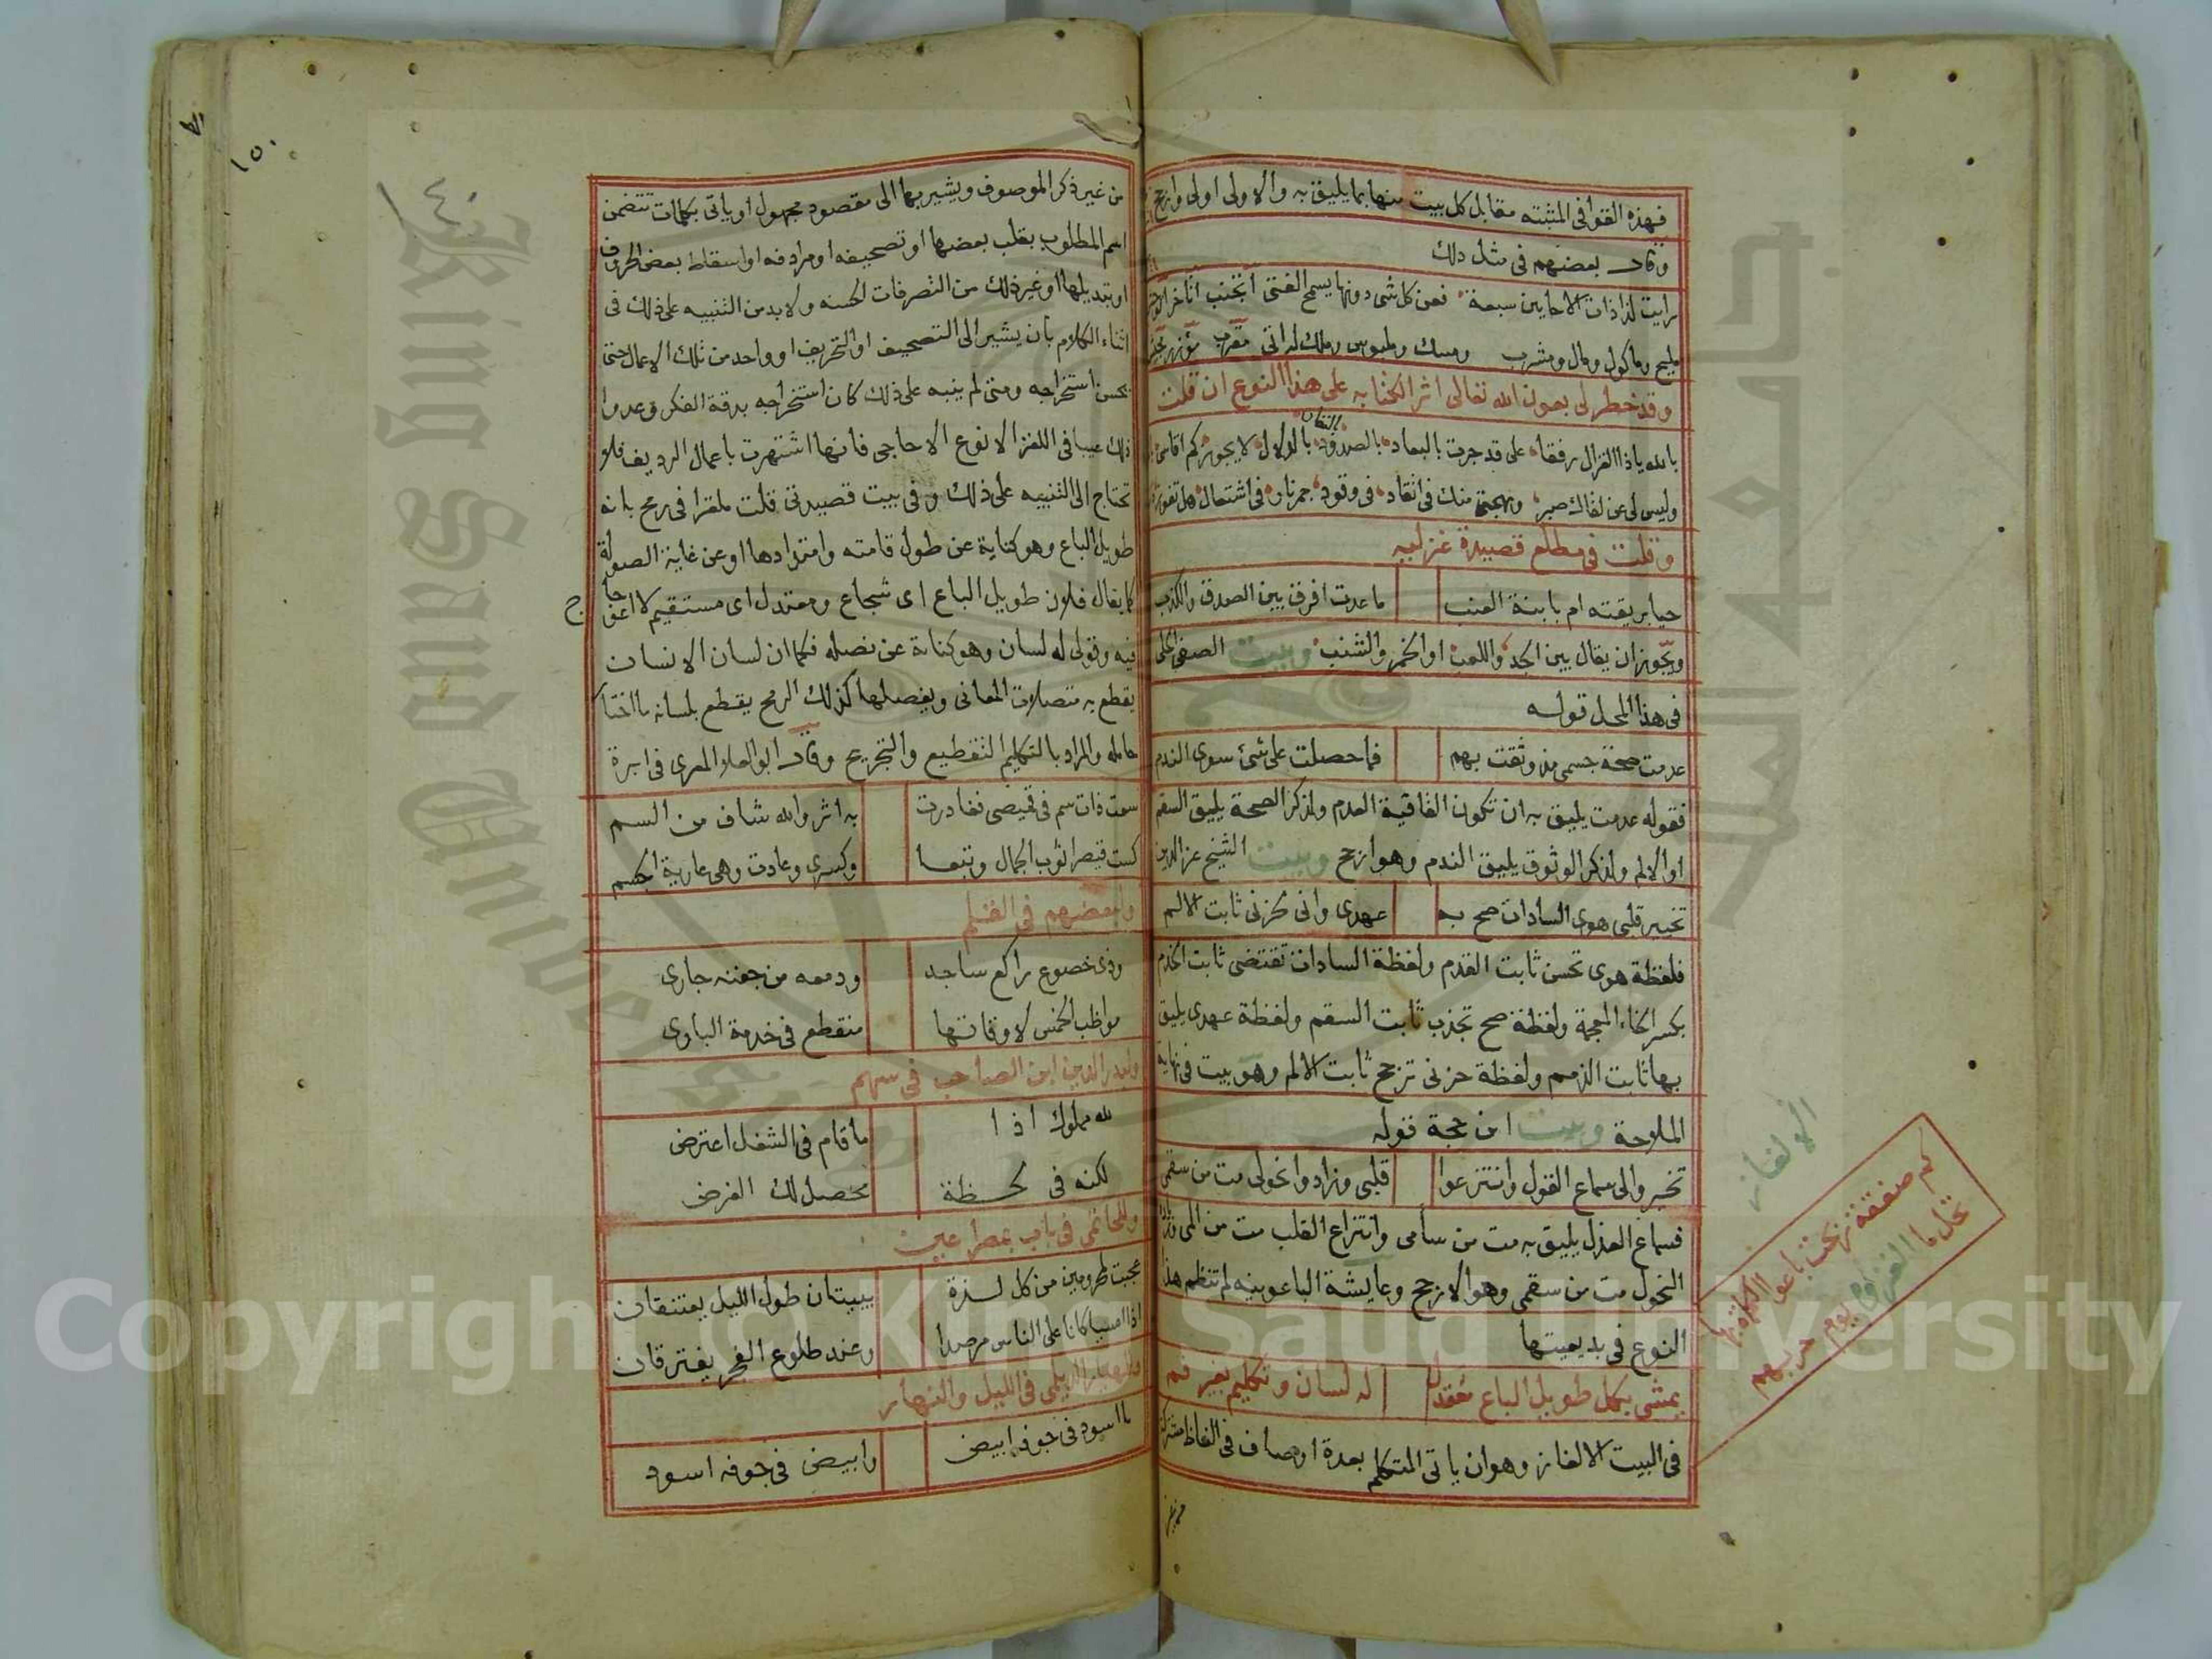 فهذه القوافى المثبته مقابل كل بيت منها بما يليق به والاولى اولى وارجح
وقال بعضهم فى مثل ذلك
رايت لذاذات الاحايين سبعة فعن كل شى دونها يسمح الفتى
مليح وماكول ومال ومشرب ومسك وملبوس وملك لداتى
وقد خطر لى بعون الله تعالى اثر الكتابه على هذا النوع ان قلت
بالله ياذا الغزال رفقا على قد جرت بالبعاد بالصدود بالدلال لا يجوز كم اقاسى
وليس لى عن لقاك صبر ومهجتى منك فى اتقاد فى وقود جمرنار فى اشتعال هل تفوز
وقلت فى مطلع قصيدة غزليه
حيا بريقته ام بابنة العنب ما عدت افرق بين الصدق والكذب
ويجوز ان يقال بين الجد واللعب او الخمر والشنب وبيت الصفى الحلى
فى هذا المحل قوله
عدمت صحة جسمى مذ وثقت بهم فما حصلت على شئ سوى الندم
فقوله عدمت يليق به ان تكون القافية العدم ولذكر الصحة يليق السقم
او الالم ولذكر الوثوق يليق الندم وهو ارجح وبيت الشيخ عز الدين
تخيير قلبى هوى السادات صح به عهدى وانى لحزنى ثابت الالم
فلفظة هوى تحسن ثابت القدم ولفظة السادات تقتضى ثابت الخدم
بكسر الخاء المعجمة ولفظة صح تجذب ثابت السقم ولفظة عهدى يليق
بها ثابت الذمم ولفظة حزنى ترجح ثابت الالم وهو بيت فى نهاية
الملاحة وبيت ابن حجة قوله
تخيروا لى سماع العذل وانتزعوا قلبى وزادوا نحولى مت من سقمى
فسماع العذل يليق به مت من سأمى وانتزاع القلب مت من المى
النحول مت من سقمى وهو الارجح وعايشة الباعونيه لم تنظم هذا
النوع فى بديعيتها
يمشى بكل طويل الباع معتدل له لسان وتكليم بغير فم
فى البيت الالغاز وهو ان ياتى المتكلم بعدة اوصاف فى الفاظ مشتركة
الالغاز
كم صفقة ربحت باعوا الكماة بها
تخال ما الغزوم يوم حربهم
١٥٠
من غير ذكر الموصوف ويشير بها الى مقصود مجهول او ياتى بكلمات تتضمن
اسم المطلوب بقلب بعضها او تصحيفه او مرادفه او اسقاط بعض الحروف
او تبديلها او غير ذلك من التصرفات الحسنه ولا بد من التنبيه على ذلك فى
اثناء الكلام بان يشير الى التصحيف او التحريف او واحد من تلك الاعمال حتى
يحسن استخراجه ومتى لم ينبه على ذلك كان استخراجه بدقة الفكر وعدوا
ذلك عيبا فى اللغز الا نوع الاحاجى فانها اشتهرت باعمال الرديف فلا
تحتاج الى التنبيه على ذلك وفى بيت قصيدتى قلت ملغزا فى رمح بانه
طويل الباع وهو كناية عن طول قامته وامتدادها او عن غاية الصولة
كما يقال فلان طويل الباع اى شجاع ومعتدل اى مستقيم لا اعوجاج
فيه وقولى له لسان وهو كناية عن نصله فكما ان لسان الانسان
يقطع به متصلات المعانى ويفصلها كذلك الرمح يقطع بلسانه ما اختار
حامله والمراد بالتكليم التقطيع والتجريح وقال ابو العلا المعرى فى ابرة
سعت ذات سم فى قميصى فغادرت به اثر والله شاف من السم
كست قيصرا ثوب الجمال وتبعا وكسرى وعادت وهى عارية الجسم
ولبعضهم فى القلم
وذى خضوع راكع ساجد ودمعه من جفنه جارى
مواظب الخمس لاوقاتها منقطع فى خدمة البارى
ولبدر الدين ابن الصاحب فى سهم
لله مملوك اذا ما قام فى الشغل اعترض
لكنه فى لحظة محصل لك الغرض
وللحاتمى فى باب بمصراعين
عجبت لمحرومين من كل لذة يبيتان طول الليل يعتنقان
اذا امسيا كانا على الناس مرصدا وعند طلوع الفجر يفترقان
ولمهيار الديلمى فى الليل والنهار
ما اسود فى جوفه ابيض وابيض فى جوفه اسود